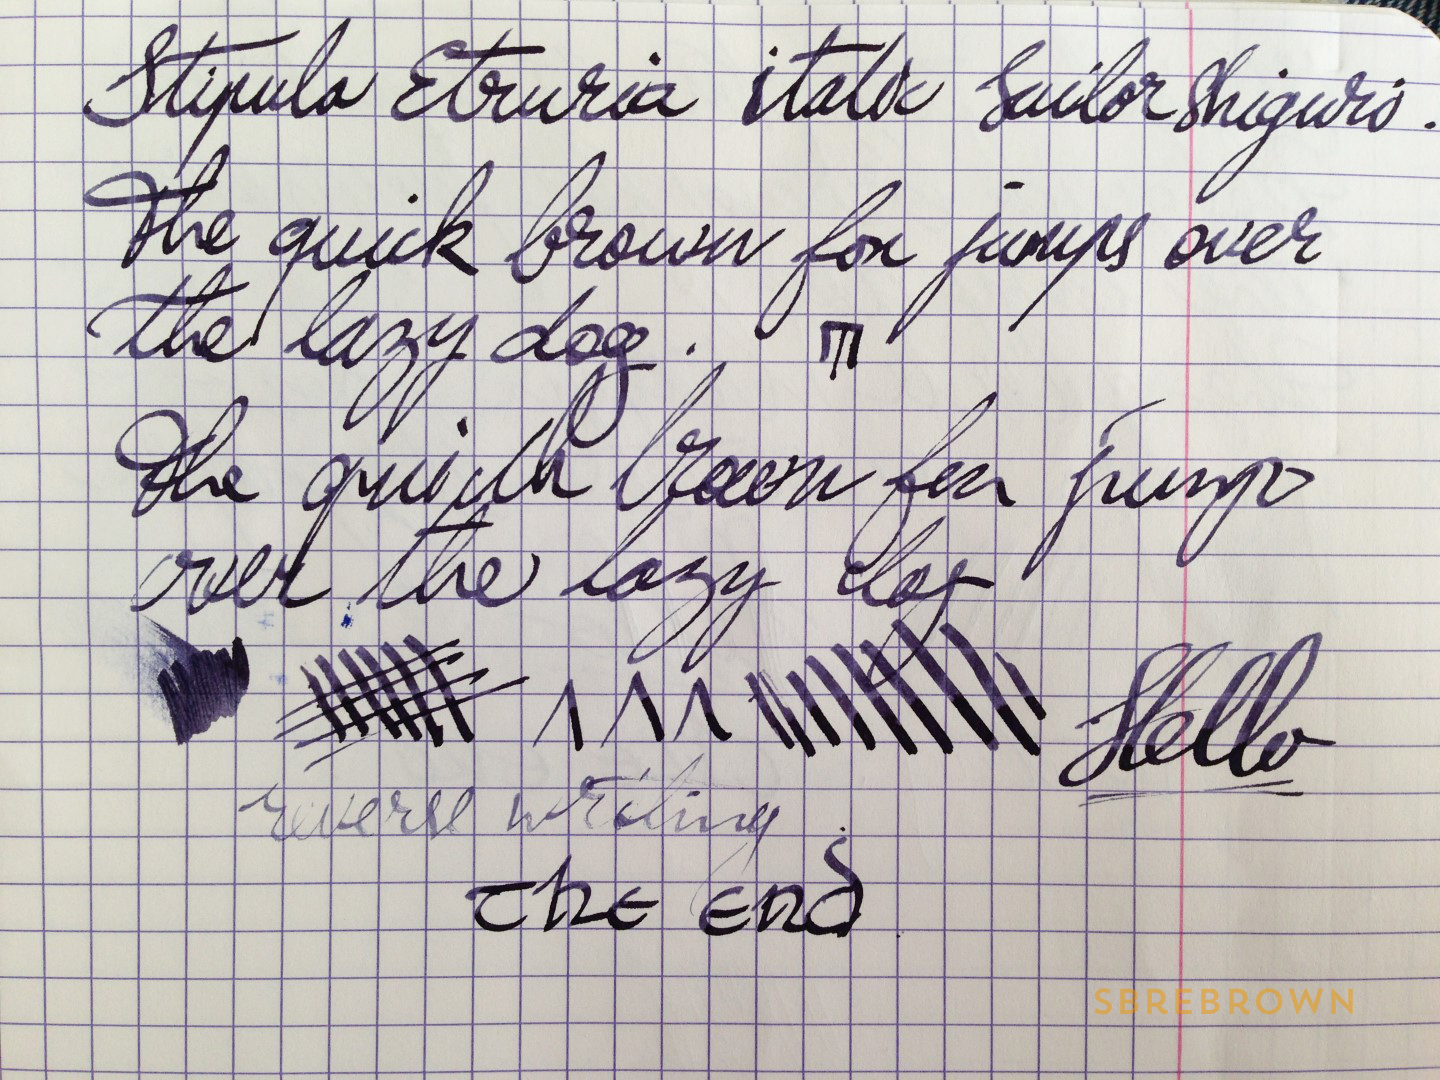 Stipula Etruria italic Sailor Shiguro.
The quick brown fox jumps over
the lazy dog.
The quick brown fox jumps
over the lazy dog
Hello
reverse writing
the end
SBREBROWN